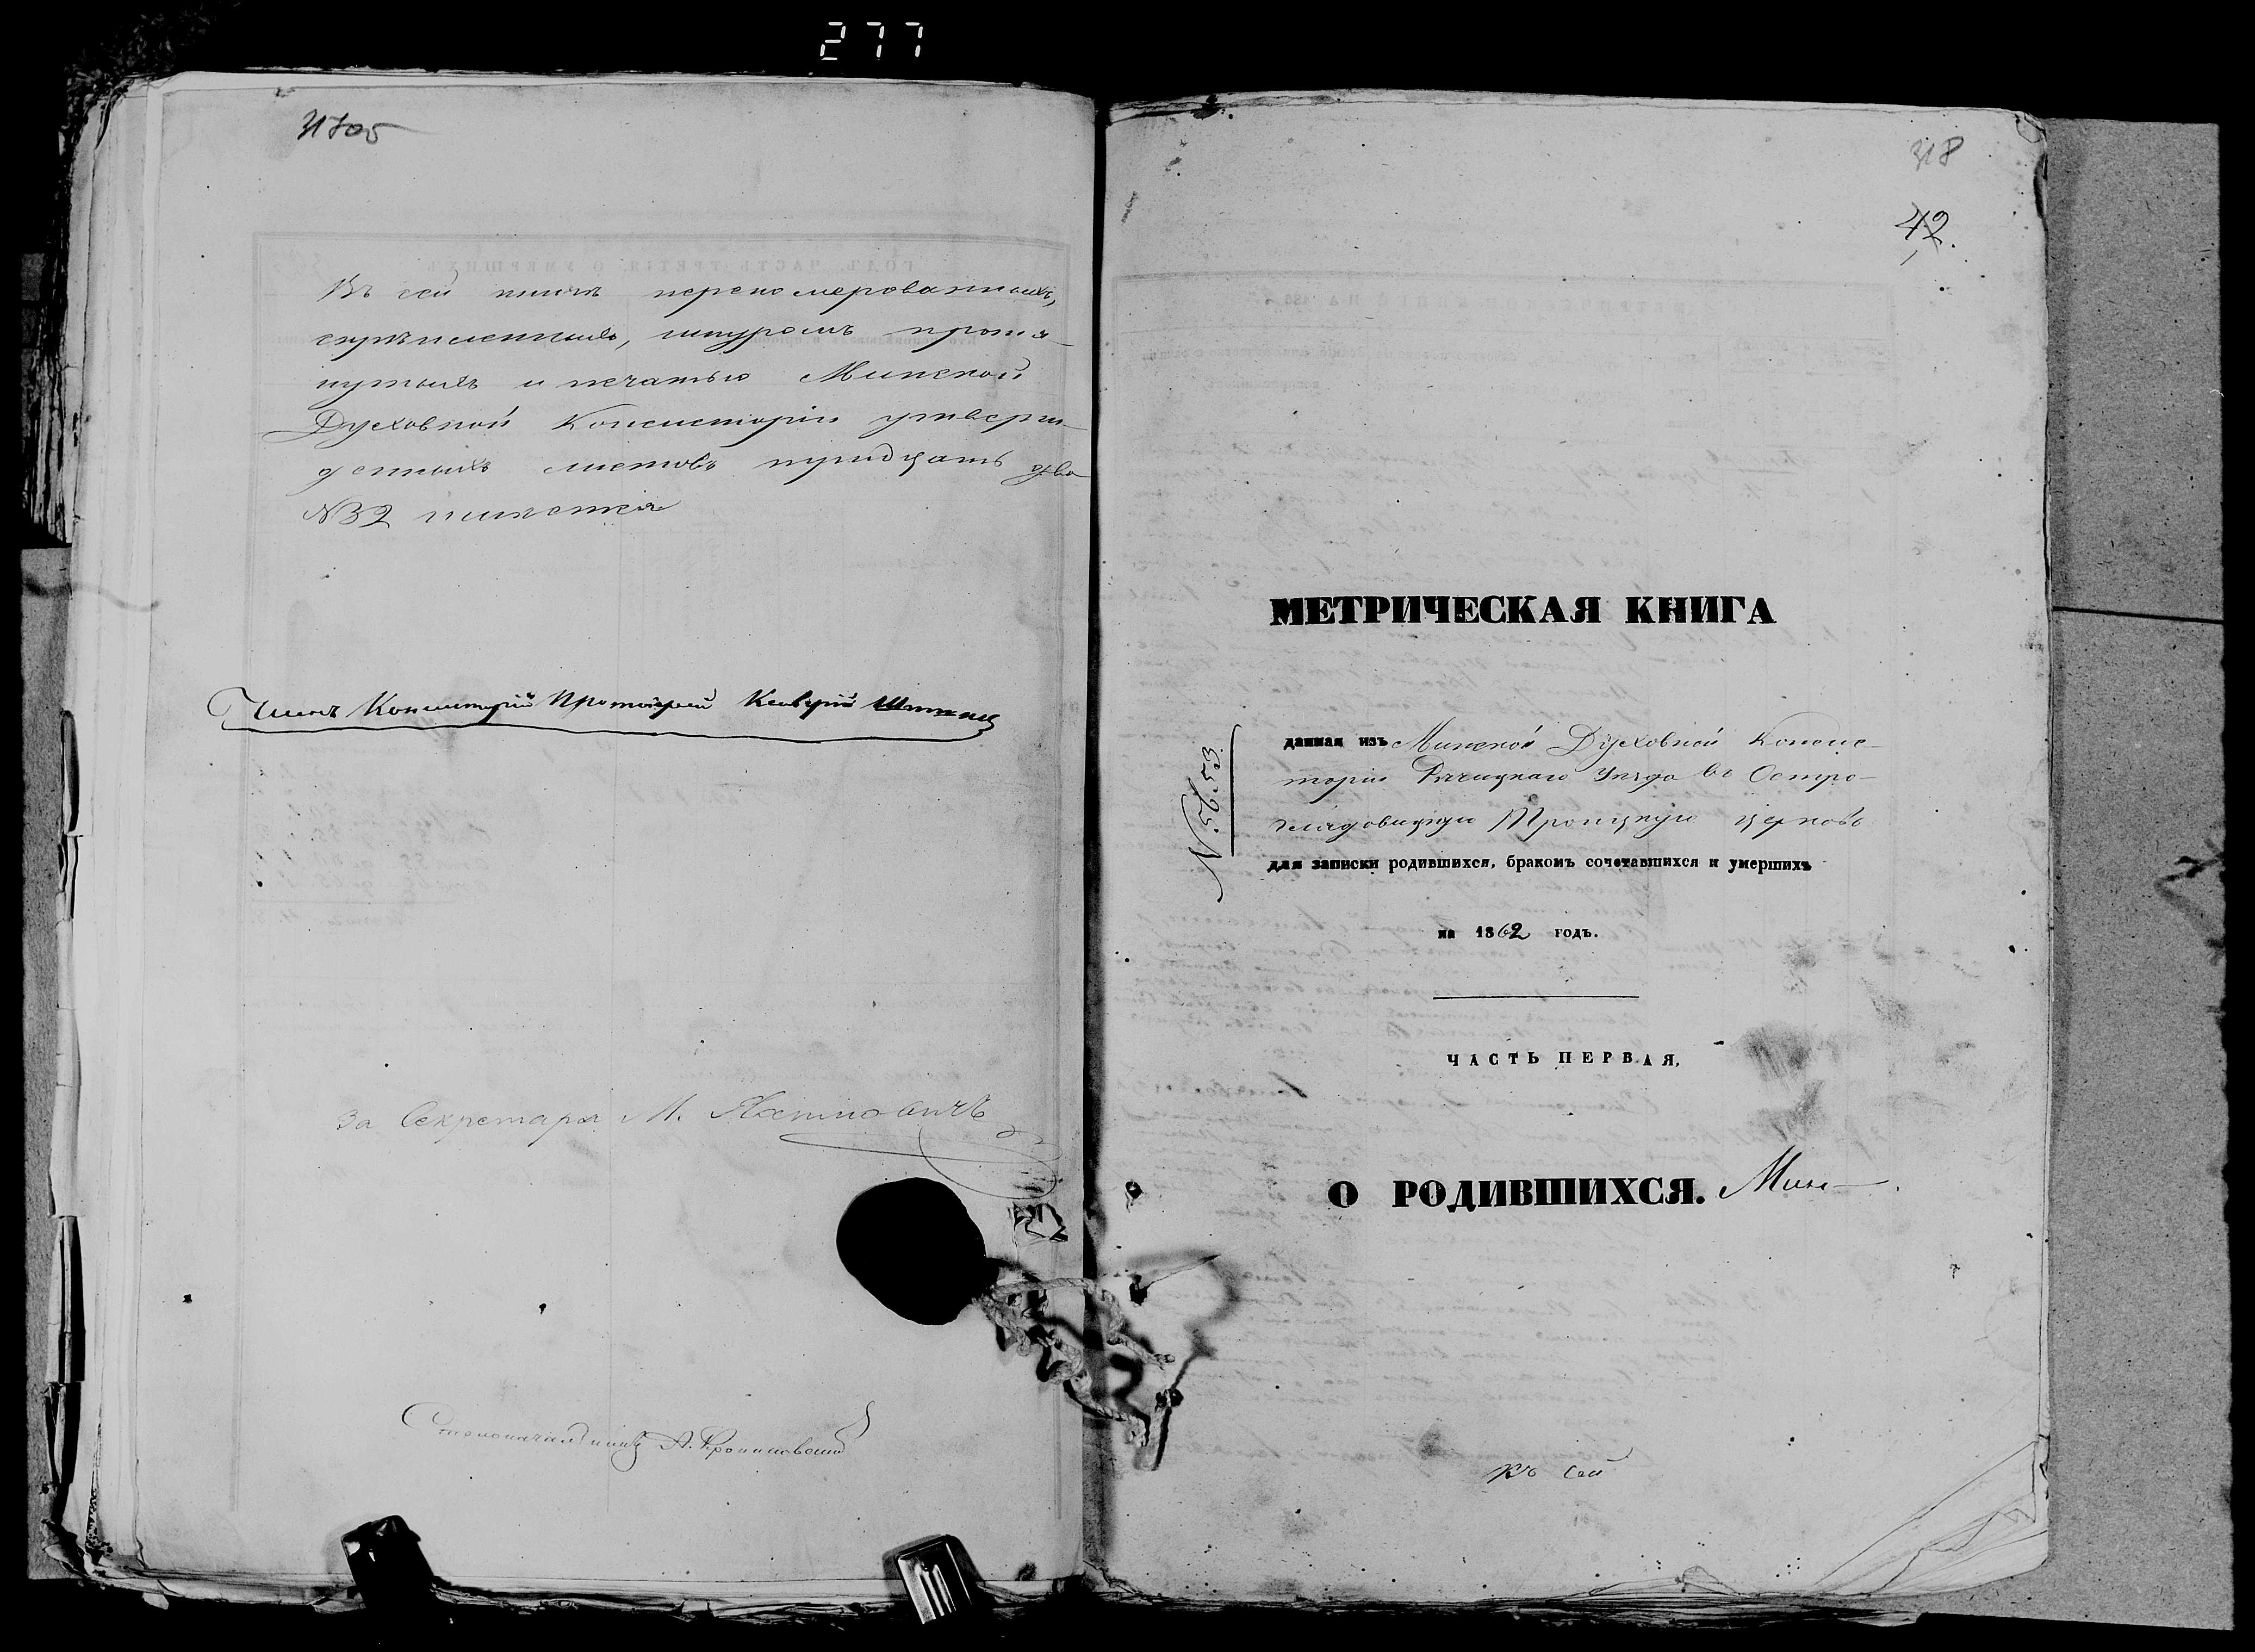 277
317об
Въ сей книгѣ перенумерованныхъ,
скрѣпленныхъ, шнуромъ протя-
нутыхъ и печатью Минской
Духовной Консисторіи утверж-
денныхъ листовъ тридцать два
№32 листа
Членъ Консисторіи Протоіерей
За Секретаря М.
Столоначальникъ А.
318
42.
МЕТРИЧЕСКАЯ КНИГА
№ 5653
данная изъ Минской Духовной Консис-
торіи Рѣчицкаго Уѣзда въ Остро-
глядовицкую Троицкую церковь
для записки родившихся, бракомъ сочетавшихся и умершихъ
на 1862 годъ.
ЧАСТЬ ПЕРВАЯ,
О РОДИВШИХСЯ. Мин
Къ сей